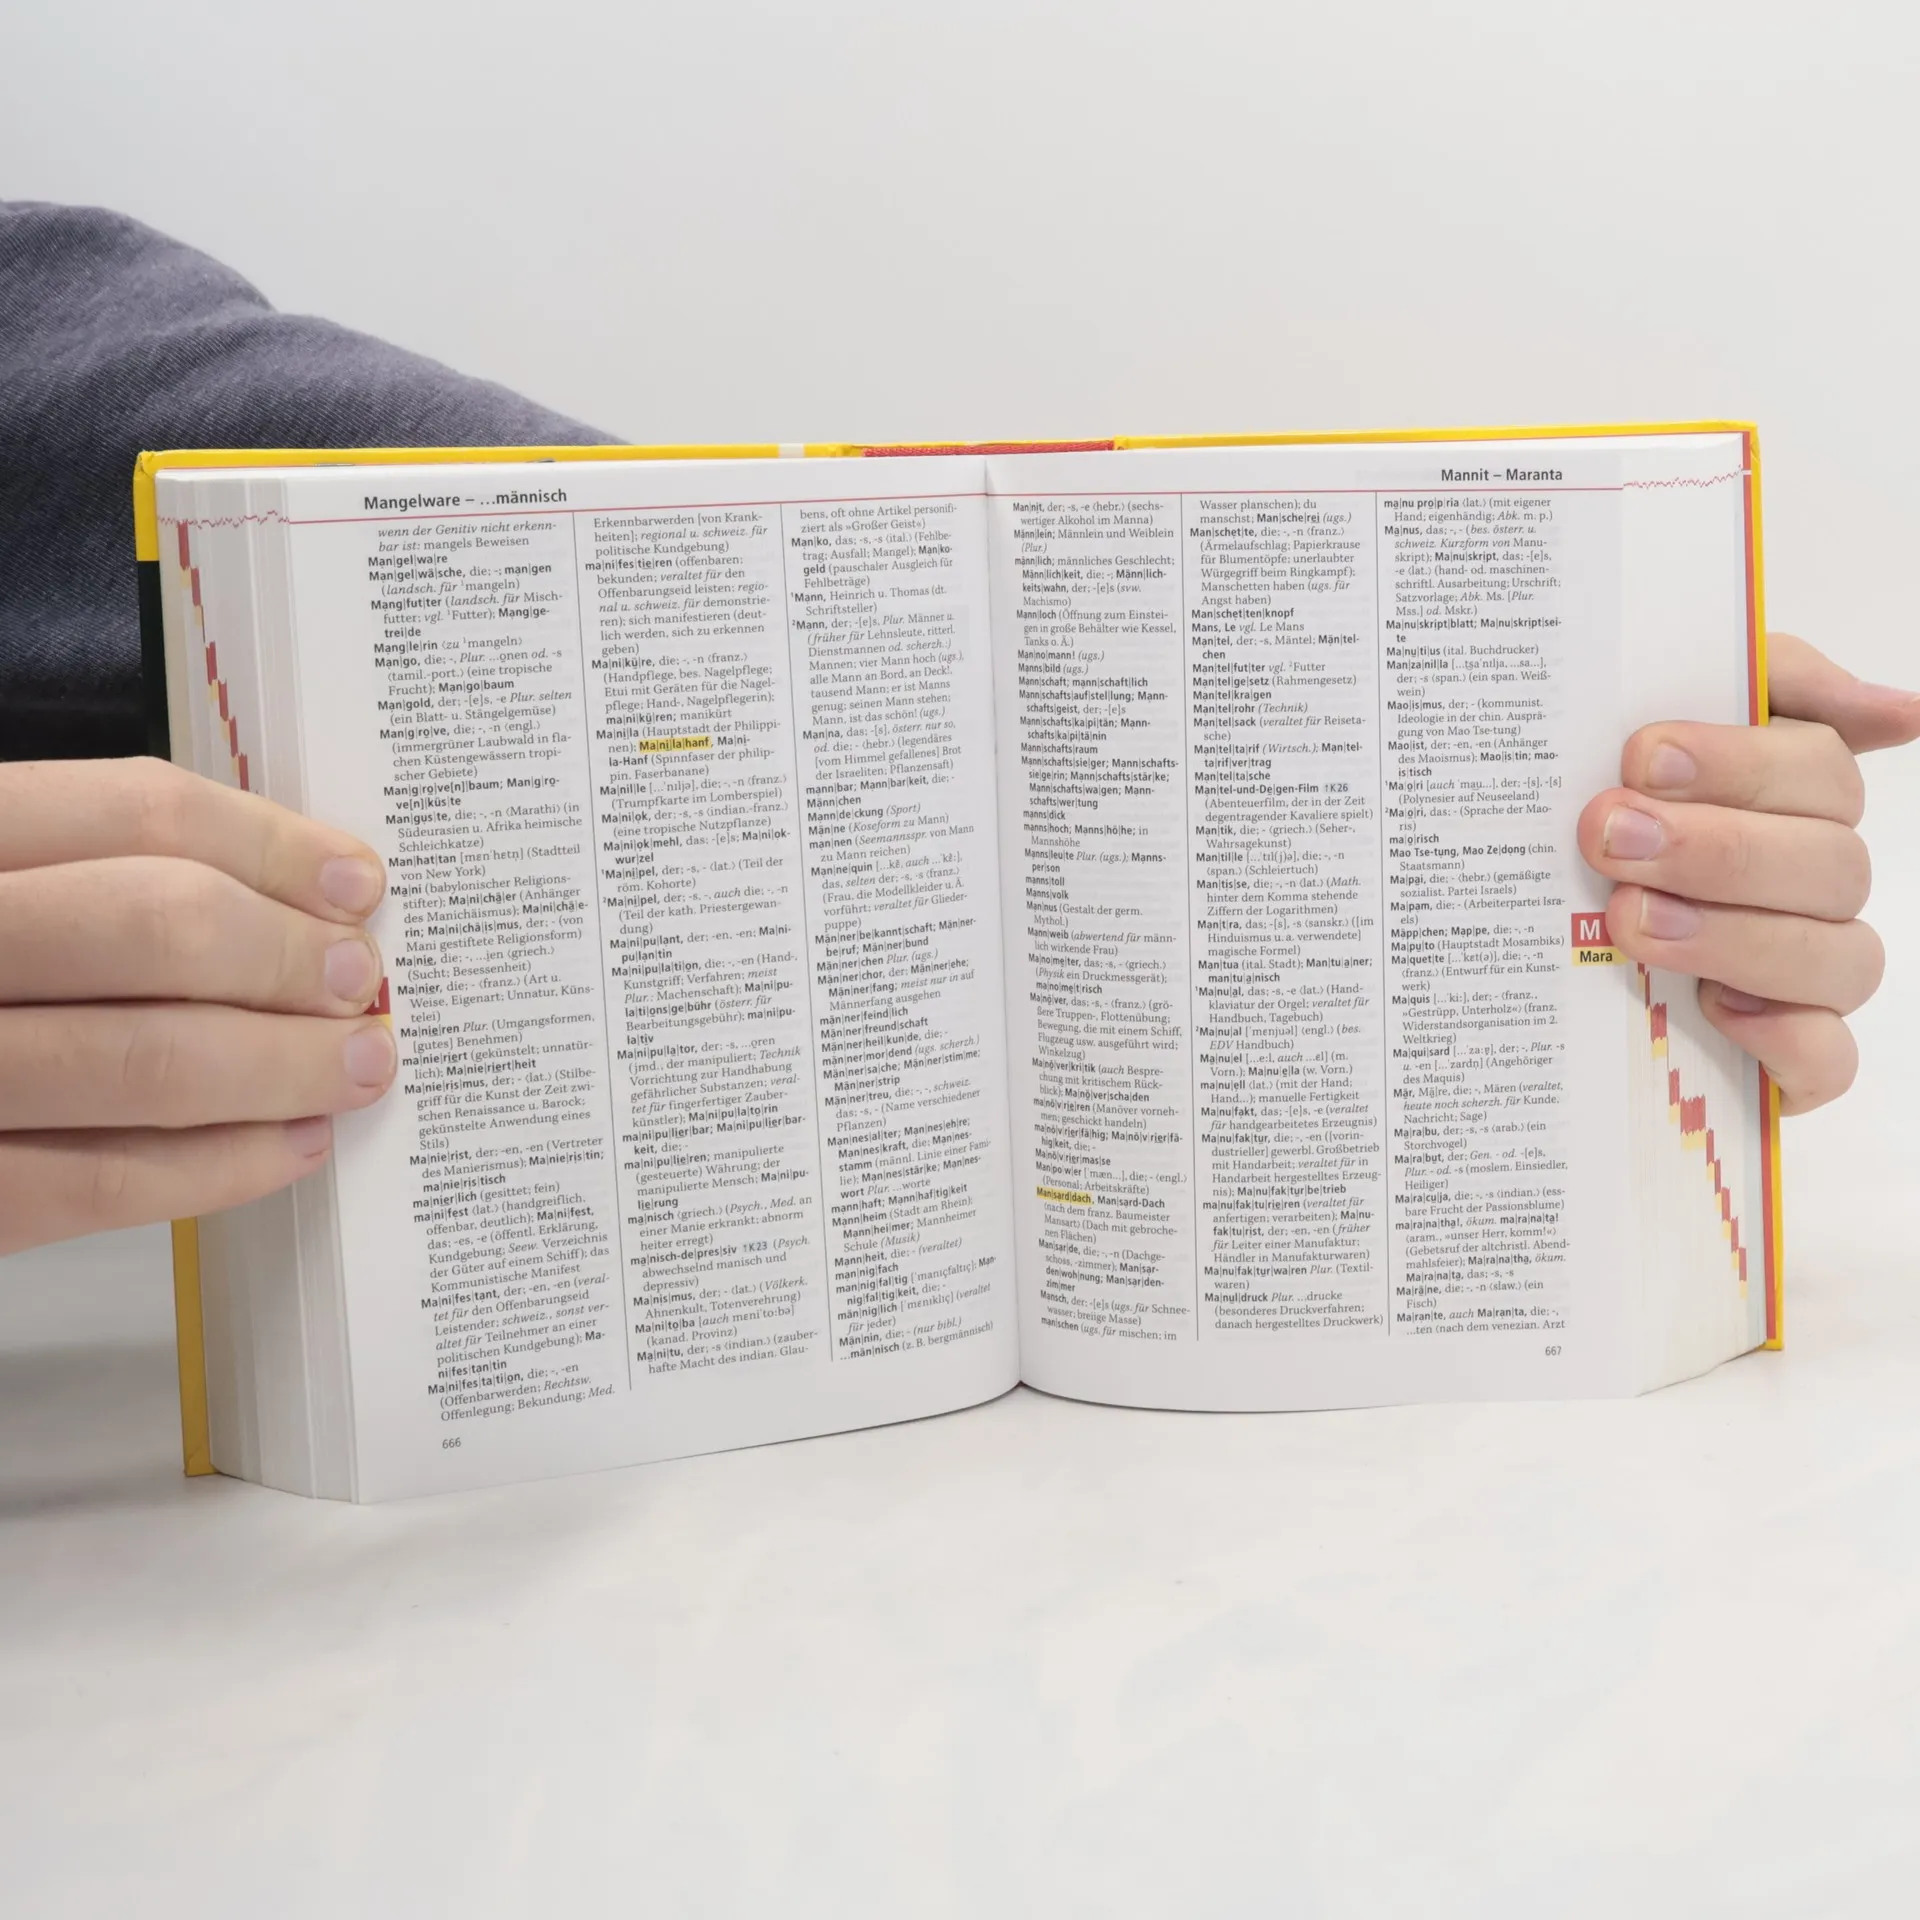 Mangelware – …männisch
wenn der Genitiv nicht erkenn-
bar ist: mangels Beweisen
Man|gel|wa|re
Man|gel|wä|sche, die; -; man|gen
(landsch. für ¹mangeln)
Mang|fut|ter (landsch. für Misch-
futter; vgl. ¹Futter); Mang|ge-
trei|de
Mang|le|rin ⟨zu ¹mangeln⟩
Man|go, die; -, Plur. …onen od. -s
⟨tamil.-port.⟩ (eine tropische
Frucht); Man|go|baum
Man|gold, der; -[e]s, -e Plur. selten
(ein Blatt- u. Stängelgemüse)
Man|g|ro|ve, die; -, -n ⟨engl.⟩
(immergrüner Laubwald in fla-
chen Küstengewässern tropi-
scher Gebiete)
Man|g|ro|ve[n]|baum; Man|g|ro-
ve[n]|küs|te
Man|gus|te, die; -, -n ⟨Marathi⟩ (in
Südeurasien u. Afrika heimische
Schleichkatze)
Man|hat|tan [mɛnˈhɛtn̩] (Stadtteil
von New York)
Ma|ni (babylonischer Religions-
stifter); Ma|ni|chä|er (Anhänger
des Manichäismus); Ma|ni|chä|e-
rin; Ma|ni|chä|is|mus, der; - (von
Mani gestiftete Religionsform)
Ma|nie, die; -, …jen ⟨griech.⟩
(Sucht; Besessenheit)
Ma|nier, die; - ⟨franz.⟩ (Art u.
Weise, Eigenart; Unnatur, Küns-
telei)
Ma|nie|ren Plur. (Umgangsformen,
[gutes] Benehmen)
ma|nie|riert (gekünstelt; unnatür-
lich); Ma|nie|riert|heit
Ma|nie|ris|mus, der; - ⟨lat.⟩ (Stilbe-
griff für die Kunst der Zeit zwi-
schen Renaissance u. Barock;
gekünstelte Anwendung eines
Stils)
Ma|nie|rist, der; -en, -en (Vertreter
des Manierismus); Ma|nie|ris|tin;
ma|nie|ris|tisch
ma|nier|lich (gesittet; fein)
ma|ni|fest ⟨lat.⟩ (handgreiflich,
offenbar, deutlich); Ma|ni|fest,
das; -es, -e (öffentl. Erklärung,
Kundgebung; Seew. Verzeichnis
der Güter auf einem Schiff); das
Kommunistische Manifest
Ma|ni|fes|tant, der; -en, -en (veral-
tet für den Offenbarungseid
Leistender; schweiz., sonst ver-
altet für Teilnehmer an einer
politischen Kundgebung); Ma-
ni|fes|tan|tin
Ma|ni|fes|ta|ti|on, die; -, -en
(Offenbarwerden; Rechtsw.
Offenlegung; Bekundung; Med.
666
Erkennbarwerden [von Krank-
heiten]; regional u. schweiz. für
politische Kundgebung)
ma|ni|fes|tie|ren (offenbaren;
bekunden; veraltet für den
Offenbarungseid leisten; regio-
nal u. schweiz. für demonstrie-
ren); sich manifestieren (deut-
lich werden, sich zu erkennen
geben)
Ma|ni|kü|re, die; -, -n ⟨franz.⟩
(Handpflege, bes. Nagelpflege;
Etui mit Geräten für die Nagel-
pflege; Hand-, Nagelpflegerin);
ma|ni|kü|ren; manikürt
Ma|ni|la (Hauptstadt der Philippi-
nen); Ma|ni|la|hanf, Ma|ni-
la-Hanf (Spinnfaser der philip-
pin. Faserbanane)
Ma|nil|le […ˈnɪljə], die; -, -n ⟨franz.⟩
(Trumpfkarte im Lomberspiel)
Ma|ni|ok, der; -s, -s ⟨indian.-franz.⟩
(eine tropische Nutzpflanze)
Ma|ni|ok|mehl, das; -[e]s; Ma|ni|ok-
wur|zel
¹Ma|ni|pel, der; -s, - ⟨lat.⟩ (Teil der
röm. Kohorte)
²Ma|ni|pel, der; -s, -, auch die; -, -n
(Teil der kath. Priestergewan-
dung)
Ma|ni|pu|lant, der; -en, -en; Ma|ni-
pu|lan|tin
Ma|ni|pu|la|ti|on, die; -, -en (Hand-,
Kunstgriff; Verfahren; meist
Plur.: Machenschaft); Ma|ni|pu-
la|ti|ons|ge|bühr (österr. für
Bearbeitungsgebühr); ma|ni|pu-
la|tiv
Ma|ni|pu|la|tor, der; -s, …oren
(jmd., der manipuliert; Technik
Vorrichtung zur Handhabung
gefährlicher Substanzen; veral-
tet für fingerfertiger Zauber-
künstler); Ma|ni|pu|la|to|rin
ma|ni|pu|lier|bar; Ma|ni|pu|lier|bar-
keit, die; -
ma|ni|pu|lie|ren; manipulierte
(gesteuerte) Währung; der
manipulierte Mensch; Ma|ni|pu-
lie|rung
ma|nisch ⟨griech.⟩ (Psych., Med. an
einer Manie erkrankt; abnorm
heiter erregt)
ma|nisch-de|pres|siv ↑K23 (Psych.
abwechselnd manisch und
depressiv)
Ma|nis|mus, der; - ⟨lat.⟩ (Völkerk.
Ahnenkult, Totenverehrung)
Ma|ni|to|ba [auch mɛniˈtoːba]
(kanad. Provinz)
Ma|ni|tu, der; -s ⟨indian.⟩ (zauber-
hafte Macht des indian. Glau-
bens, oft ohne Artikel personifi-
ziert als »Großer Geist«)
Man|ko, das; -s, -s ⟨ital.⟩ (Fehlbe-
trag; Ausfall; Mangel); Man|ko-
geld (pauschaler Ausgleich für
Fehlbeträge)
¹Mann, Heinrich u. Thomas (dt.
Schriftsteller)
²Mann, der; -[e]s, Plur. Männer u.
(früher für Lehnsleute, ritterl.
Dienstmannen od. scherzh.:)
Mannen; vier Mann hoch (ugs.),
alle Mann an Bord, an Deck!,
tausend Mann; er ist Manns
genug; seinen Mann stehen;
Mann, ist das schön! (ugs.)
Man|na, das; -[s], österr. nur so,
od. die; - ⟨hebr.⟩ (legendäres
[vom Himmel gefallenes] Brot
der Israeliten; Pflanzensaft)
mann|bar; Mann|bar|keit, die; -
Männ|chen
Mann|de|ckung (Sport)
Män|ne (Koseform zu Mann)
man|nen (Seemannsspr. von Mann
zu Mann reichen)
Man|ne|quin […kɛ̃, auch …ˈkɛ̃ː],
das, selten der; -s, -s ⟨franz.⟩
(Frau, die Modellkleider u. Ä.
vorführt; veraltet für Glieder-
puppe)
Män|ner|be|kannt|schaft; Män|ner-
be|ruf; Män|ner|bund
Män|ner|chen Plur. (ugs.)
Män|ner|chor, der; Män|ner|ehe;
Män|ner|fang; meist nur in auf
Männerfang ausgehen
män|ner|feind|lich
Män|ner|freund|schaft
Män|ner|heil|kun|de, die; -
män|ner|mor|dend (ugs. scherzh.)
Män|ner|sa|che; Män|ner|stim|me;
Män|ner|strip
Män|ner|treu, die; -, -, schweiz.
das; -s, - (Name verschiedener
Pflanzen)
Man|nes|al|ter; Man|nes|eh|re;
Man|nes|kraft, die; Man|nes-
stamm (männl. Linie einer Fami-
lie); Man|nes|stär|ke; Man|nes-
wort Plur. …worte
mann|haft; Mann|haf|tig|keit
Mann|heim (Stadt am Rhein);
Mann|hei|mer; Mannheimer
Schule (Musik)
Mann|heit, die; - (veraltet)
man|nig|fach
man|nig|fal|tig [ˈmanɪçfaltɪç]; Man-
nig|fal|tig|keit, die; -
män|nig|lich [ˈmɛnɪklɪç] (veraltet
für jeder)
Män|nin, die; - (nur bibl.)
…män|nisch (z. B. bergmännisch)
Mannit – Maranta
Man|nit, der; -s, -e ⟨hebr.⟩ (sechs-
wertiger Alkohol im Manna)
Männ|lein; Männlein und Weiblein
(Plur.)
männ|lich; männliches Geschlecht;
Männ|lich|keit, die; -; Männ|lich-
keits|wahn, der; -[e]s (svw.
Machismo)
Mann|loch (Öffnung zum Einstei-
gen in große Behälter wie Kessel,
Tanks o. Ä.)
Man|no|mann! (ugs.)
Manns|bild (ugs.)
Mann|schaft; mann|schaft|lich
Mann|schafts|auf|stel|lung; Mann-
schafts|geist, der; -[e]s
Mann|schafts|ka|pi|tän; Mann-
schafts|ka|pi|tä|nin
Mann|schafts|raum
Mann|schafts|sie|ger; Mann|schafts-
sie|ge|rin; Mann|schafts|stär|ke;
Mann|schafts|wa|gen; Mann-
schafts|wer|tung
manns|dick
manns|hoch; Manns|hö|he; in
Mannshöhe
Manns|leu|te Plur. (ugs.); Manns-
per|son
manns|toll
Manns|volk
Man|nus (Gestalt der germ.
Mythol.)
Mann|weib (abwertend für männ-
lich wirkende Frau)
Ma|no|me|ter, das; -s, - ⟨griech.⟩
(Physik ein Druckmessgerät);
ma|no|me|t|risch
Ma|nö|ver, das; -s, - ⟨franz.⟩ (grö-
ßere Truppen-, Flottenübung;
Bewegung, die mit einem Schiff,
Flugzeug usw. ausgeführt wird;
Winkelzug)
Ma|nö|ver|kri|tik (auch Bespre-
chung mit kritischem Rück-
blick); Ma|nö|ver|scha|den
ma|nö|v|rie|ren (Manöver vorneh-
men; geschickt handeln)
ma|nö|v|rier|fä|hig; Ma|nö|v|rier|fä-
hig|keit, die; -
Ma|nö|v|rier|mas|se
Man|po|w|er [ˈmæn…], die; - ⟨engl.⟩
(Personal; Arbeitskräfte)
Man|sard|dach, Man|sard-Dach
⟨nach dem franz. Baumeister
Mansart⟩ (Dach mit gebroche-
nen Flächen)
Man|sar|de, die; -, -n (Dachge-
schoss, -zimmer); Man|sar-
den|woh|nung; Man|sar|den-
zim|mer
Mansch, der; -[e]s (ugs. für Schnee-
wasser; breiige Masse)
man|schen (ugs. für mischen; im
Wasser planschen); du
manschst; Man|sche|rei (ugs.)
Man|schet|te, die; -, -n ⟨franz.⟩
(Ärmelaufschlag; Papierkrause
für Blumentöpfe; unerlaubter
Würgegriff beim Ringkampf);
Manschetten haben (ugs. für
Angst haben)
Man|schet|ten|knopf
Mans, Le vgl. Le Mans
Man|tel, der; -s, Mäntel; Män|tel-
chen
Man|tel|fut|ter vgl. ²Futter
Man|tel|ge|setz (Rahmengesetz)
Man|tel|kra|gen
Man|tel|rohr (Technik)
Man|tel|sack (veraltet für Reiseta-
sche)
Man|tel|ta|rif (Wirtsch.); Man|tel-
ta|rif|ver|trag
Man|tel|ta|sche
Man|tel-und-De|gen-Film ↑K26
(Abenteuerfilm, der in der Zeit
degentragender Kavaliere spielt)
Man|tik, die; - ⟨griech.⟩ (Seher-,
Wahrsagekunst)
Man|til|le […ˈtɪl(j)ə], die; -, -n
⟨span.⟩ (Schleiertuch)
Man|tis|se, die; -, -n ⟨lat.⟩ (Math.
hinter dem Komma stehende
Ziffern der Logarithmen)
Man|t|ra, das; -[s], -s ⟨sanskr.⟩ ([im
Hinduismus u. a. verwendete]
magische Formel)
Man|tua (ital. Stadt); Man|tu|a|ner;
man|tu|a|nisch
¹Ma|nu|al, das; -s, -e ⟨lat.⟩ (Hand-
klaviatur der Orgel; veraltet für
Handbuch, Tagebuch)
²Ma|nu|al [ˈmɛnjuəl] ⟨engl.⟩ (bes.
EDV Handbuch)
Ma|nu|el […eːl, auch …ɛl] (m.
Vorn.); Ma|nu|e|la (w. Vorn.)
ma|nu|ell ⟨lat.⟩ (mit der Hand;
Hand…); manuelle Fertigkeit
Ma|nu|fakt, das; -[e]s, -e (veraltet
für handgearbeitetes Erzeugnis)
Ma|nu|fak|tur, die; -, -en ([vorin-
dustrieller] gewerbl. Großbetrieb
mit Handarbeit; veraltet für in
Handarbeit hergestelltes Erzeug-
nis); Ma|nu|fak|tur|be|trieb
ma|nu|fak|tu|rie|ren (veraltet für
anfertigen; verarbeiten); Ma|nu-
fak|tu|rist, der; -en, -en (früher
für Leiter einer Manufaktur;
Händler in Manufakturwaren)
Ma|nu|fak|tur|wa|ren Plur. (Textil-
waren)
Ma|nul|druck Plur. …drucke
(besonderes Druckverfahren;
danach hergestelltes Druckwerk)
ma|nu pro|p|ria ⟨lat.⟩ (mit eigener
Hand; eigenhändig; Abk. m. p.)
Ma|nus, das; -, - (bes. österr. u.
schweiz. Kurzform von Manu-
skript); Ma|nu|skript, das; -[e]s,
-e ⟨lat.⟩ (hand- od. maschinen-
schriftl. Ausarbeitung; Urschrift;
Satzvorlage; Abk. Ms. [Plur.
Mss.] od. Mskr.)
Ma|nu|skript|blatt; Ma|nu|skript|sei-
te
Ma|nu|ti|us (ital. Buchdrucker)
Man|za|nil|la […tsaˈnɪlja, …sa…],
der; -s ⟨span.⟩ (ein span. Weiß-
wein)
Mao|is|mus, der; - (kommunist.
Ideologie in der chin. Ausprä-
gung von Mao Tse-tung)
Mao|ist, der; -en, -en (Anhänger
des Maoismus); Mao|is|tin; mao-
is|tisch
¹Ma|o|ri [auch ˈmau…], der; -[s], -[s]
(Polynesier auf Neuseeland)
²Ma|o|ri, das; - (Sprache der Mao-
ris)
ma|o|risch
Mao Tse-tung, Mao Ze|dong (chin.
Staatsmann)
Ma|pai, die; - ⟨hebr.⟩ (gemäßigte
sozialist. Partei Israels)
Ma|pam, die; - (Arbeiterpartei Isra-
els)
Mäpp|chen; Map|pe, die; -, -n
Ma|pu|to (Hauptstadt Mosambiks)
Ma|quet|te […ˈkɛt(ə)], die; -, -n
⟨franz.⟩ (Entwurf für ein Kunst-
werk)
Ma|quis […ˈkiː], der; - ⟨franz.,
»Gestrüpp, Unterholz«⟩ (franz.
Widerstandsorganisation im 2.
Weltkrieg)
Ma|qui|sard […ˈzaːɐ̯], der; -, Plur. -s
u. -en […ˈzardn̩] (Angehöriger
des Maquis)
Mär, Mä|re, die; -, Mären (veraltet,
heute noch scherzh. für Kunde,
Nachricht; Sage)
Ma|ra|bu, der; -s, -s ⟨arab.⟩ (ein
Storchvogel)
Ma|ra|but, der; Gen. - od. -[e]s,
Plur. - od. -s (moslem. Einsiedler,
Heiliger)
Ma|ra|cu|ja, die; -, -s ⟨indian.⟩ (ess-
bare Frucht der Passionsblume)
ma|ra|na|tha!, ökum. ma|ra|na|ta!
⟨aram., »unser Herr, komm!«⟩
(Gebetsruf der altchristl. Abend-
mahlsfeier); Ma|ra|na|tha, ökum.
Ma|ra|na|ta, das; -s, -s
Ma|rä|ne, die; -, -n ⟨slaw.⟩ (ein
Fisch)
Ma|ran|te, auch Ma|ran|ta, die; -,
…ten ⟨nach dem venezian. Arzt
M
Mara
667